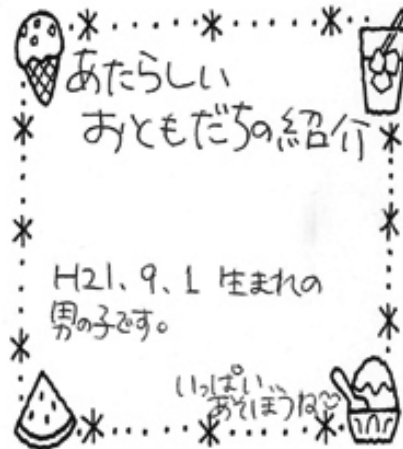 あたらしい
おともだちの紹介
H21、9、1 生まれの
男の子です。
いっぱい
あそぼうね